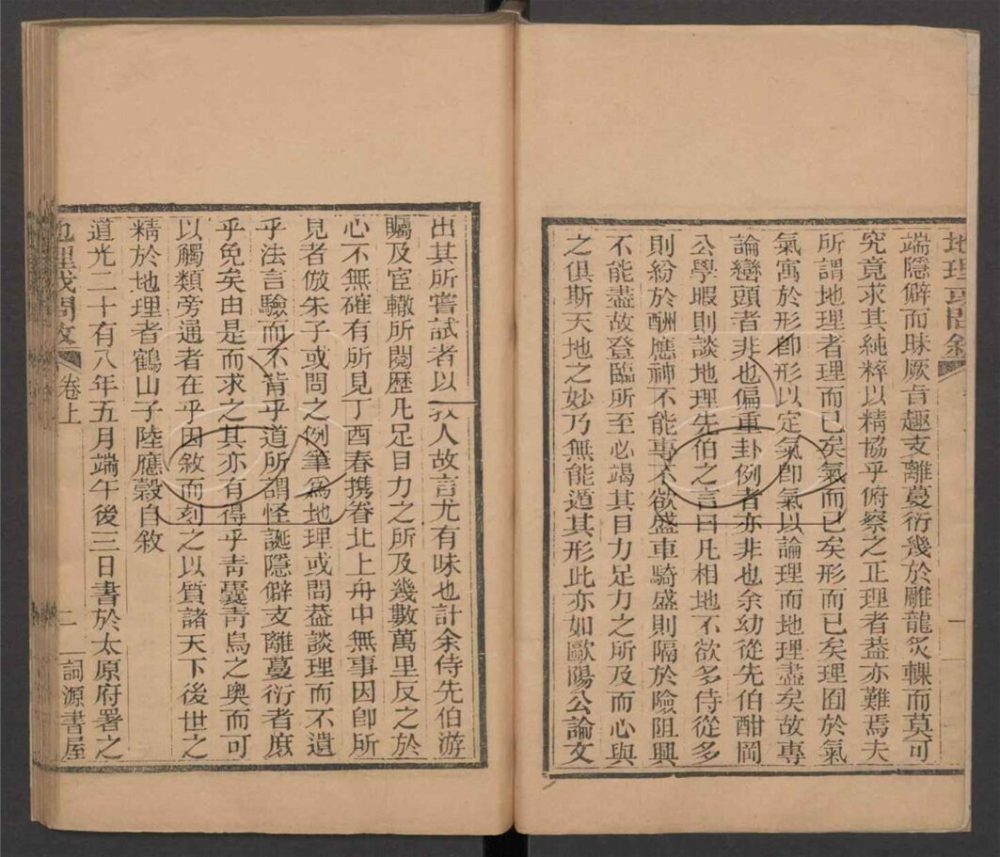 地理或問敘
一
端隱僻而昧厥旨趣支離蔓衍幾於雕龍炙輠而莫可
究竟求其純粹以精協乎俯察之正理者葢亦難焉夫
所謂地理者理而已矣氣而已矣形而已矣理囿於氣
氣寓於形卽形以定氣卽氣以論理而地理盡矣故專
論巒頭者非也偏重卦例者亦非也余幼從先伯酣岡
公學暇則談地理先伯之言曰凡相地不欲多侍從多
則紛於酬應神不能專不欲盛車騎盛則隔於險阻興
不能盡故登臨所至必竭其目力足力之所及而心與
之俱斯天地之妙乃無能遁其形此亦如歐陽公論文
出其所嘗試者以人故言尤有味也計余侍先伯游
矚及宦轍所閱歷凡足目力之所及幾數萬里反之於
心不無確有所見丁酉春携眷北上舟中無事因卽所
見者倣朱子或問之例筆爲地理或問葢談理而不遺
乎法言驗而不背乎道所謂怪誕隱僻支離蔓衍者庶
乎免矣由是而求之其亦有得乎靑囊靑烏之奧而可
以觸類旁通者在乎因敘而刻之以質諸天下後世之
精於地理者鶴山子陸應穀自敘
道光二十有八年五月端午後三日書於太原府署之
地理或問敘
卷上
二
詞源書屋